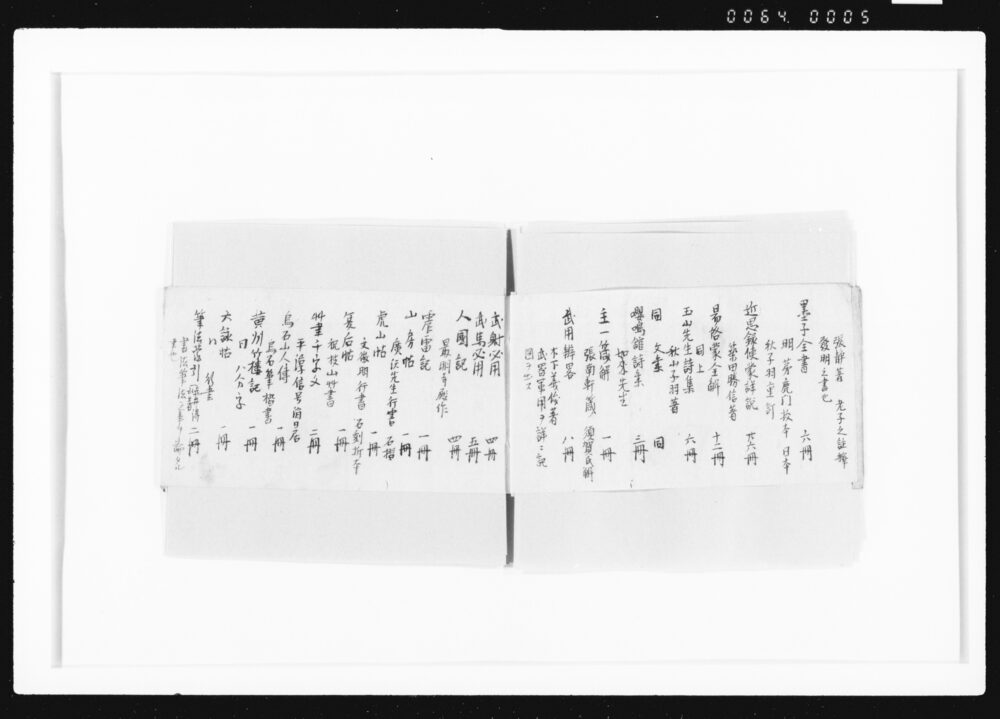 0064. 0005
張静著 老子之註解
發明之書也
墨子全書 六冊
明茅鹿門校本 日本
秋子羽重訂
近思録使蒙詳説 廿六冊
簗田勝信著
易啓蒙全解 十二冊
同上
玉山先生詩集 六冊
秋山子羽著
同 文集 同
嚶鳴館詩集 三冊
如来先生
主一箴解 一冊
張南軒箴 須賀氏解
武用辨畧 八冊
木下義俊著
武器軍用ヲ詳ニ記
図ヲ出ス
武射必用 四冊
武馬必用 五冊
人國記 四冊
最明寺殿作
雷記 一冊
山房帖 一冊
廣沢先生行書 石摺
虎山帖 一冊
文徴明行書 石刻折本
箋后帖 一冊
祝枝山艸書
艸書千字文 二冊
平信号
烏石山人傳 一冊
烏石筆楷書
黄州竹樓記 一冊
同 八分字
大詠帖 一冊
行書
筆法 二冊
書也